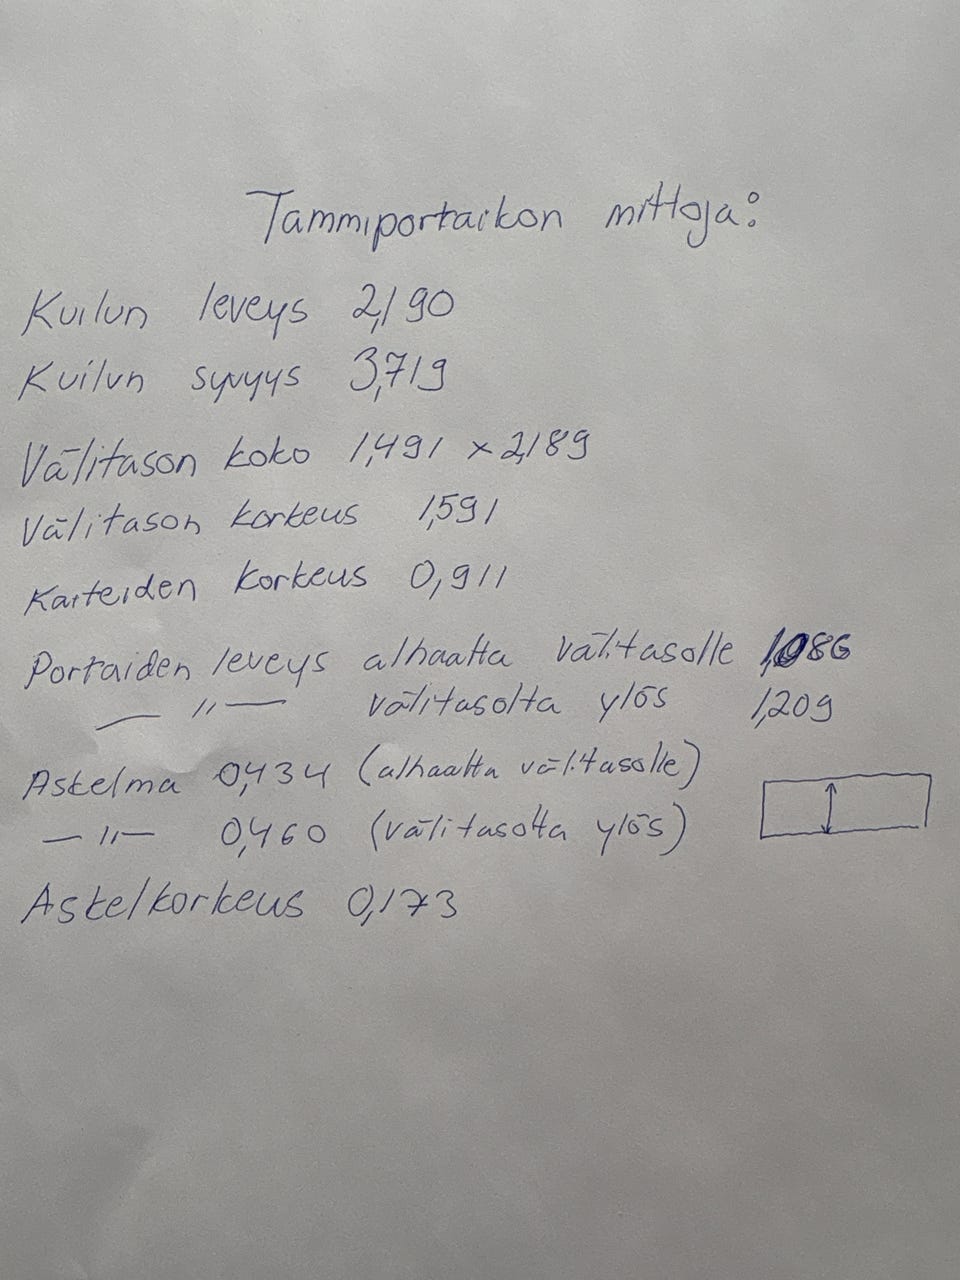 Tammiportaikon mittoja:
Kuilun leveys 2,190
Kuilun syvyys 3,719
Välitason koko 1,491 x 2,189
Välitason korkeus 1,591
Kaiteiden korkeus 0,911
Portaiden leveys alhaalta välitasolle 1,086
— " — välitasolta ylös 1,209
Askelma 0,434 (alhaalta välitasolle)
— " — 0,460 (välitasolta ylös)
Askelkorkeus 0,173